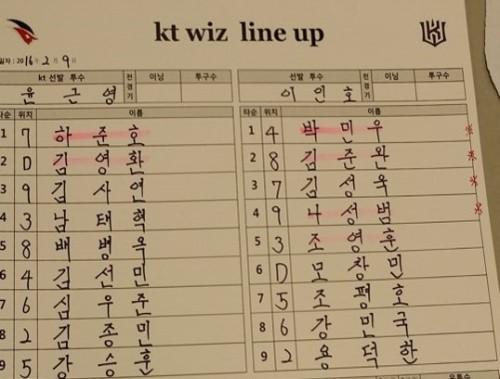 kt wiz line up
일자 : 2016년 2월 9일
kt 선발 투수 전경기 이닝 투구수
윤근영
타순 위치 이름
1 7 하준호
2 D 김영환
3 9 김사연
4 3 남태혁
5 8 배병옥
6 4 김선민
7 6 심우준
8 2 김종민
9 5 강승훈
선발 투수 전경기 이닝 투구수
이인호
타순 위치 이름
1 4 박민우
2 8 김준완
3 7 김성욱
4 9 나성범
5 3 조영훈
6 D 모창민
7 5 조평호
8 6 강민국
9 2 용덕한